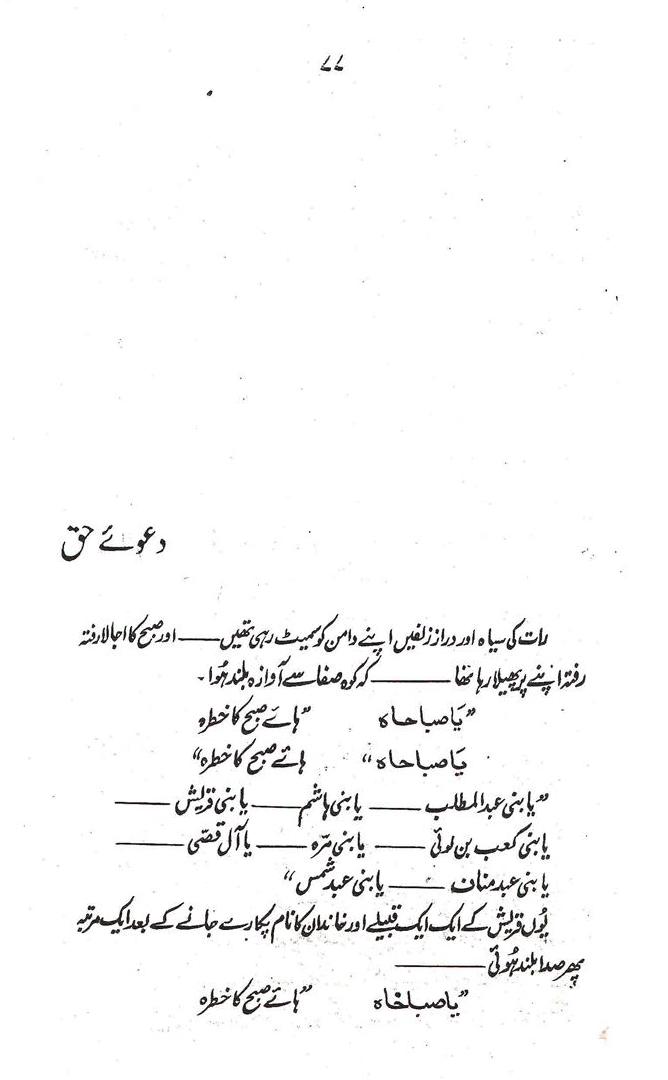 ۷۷
دعوئے حق
رات کی سیاہ اور دراز زلفیں اپنے دامن کو سمیٹ رہی تھیں ——— اور صبح کا اجالا رفتہ
رفتہ اپنے پر پھیلا رہا تھا ——— کہ کوہ صفا سے آوازہ بلند ہُوا۔
”یَا صباحاہ ”ہائے صبح کا خطرہ
یَا صباحاہ“ ہائے صبح کا خطرہ“
”یا بنی عبدالمطلب ——— یا بنی ہاشم ——— یا بنی قریش ———
یا بنی کعب بن لوئی ——— یا بنی مرّہ ——— یا آل قصّی ———
یا بنی عبد منان ——— یا بنی عبد شمس“
یُوں قریش کے ایک ایک قبیلے اور خاندان کا نام پکارے جانے کے بعد ایک مرتبہ
پھر صدا بلند ہُوئی ———
”یا صباخاہ ”ہائے صبح کا خطرہ